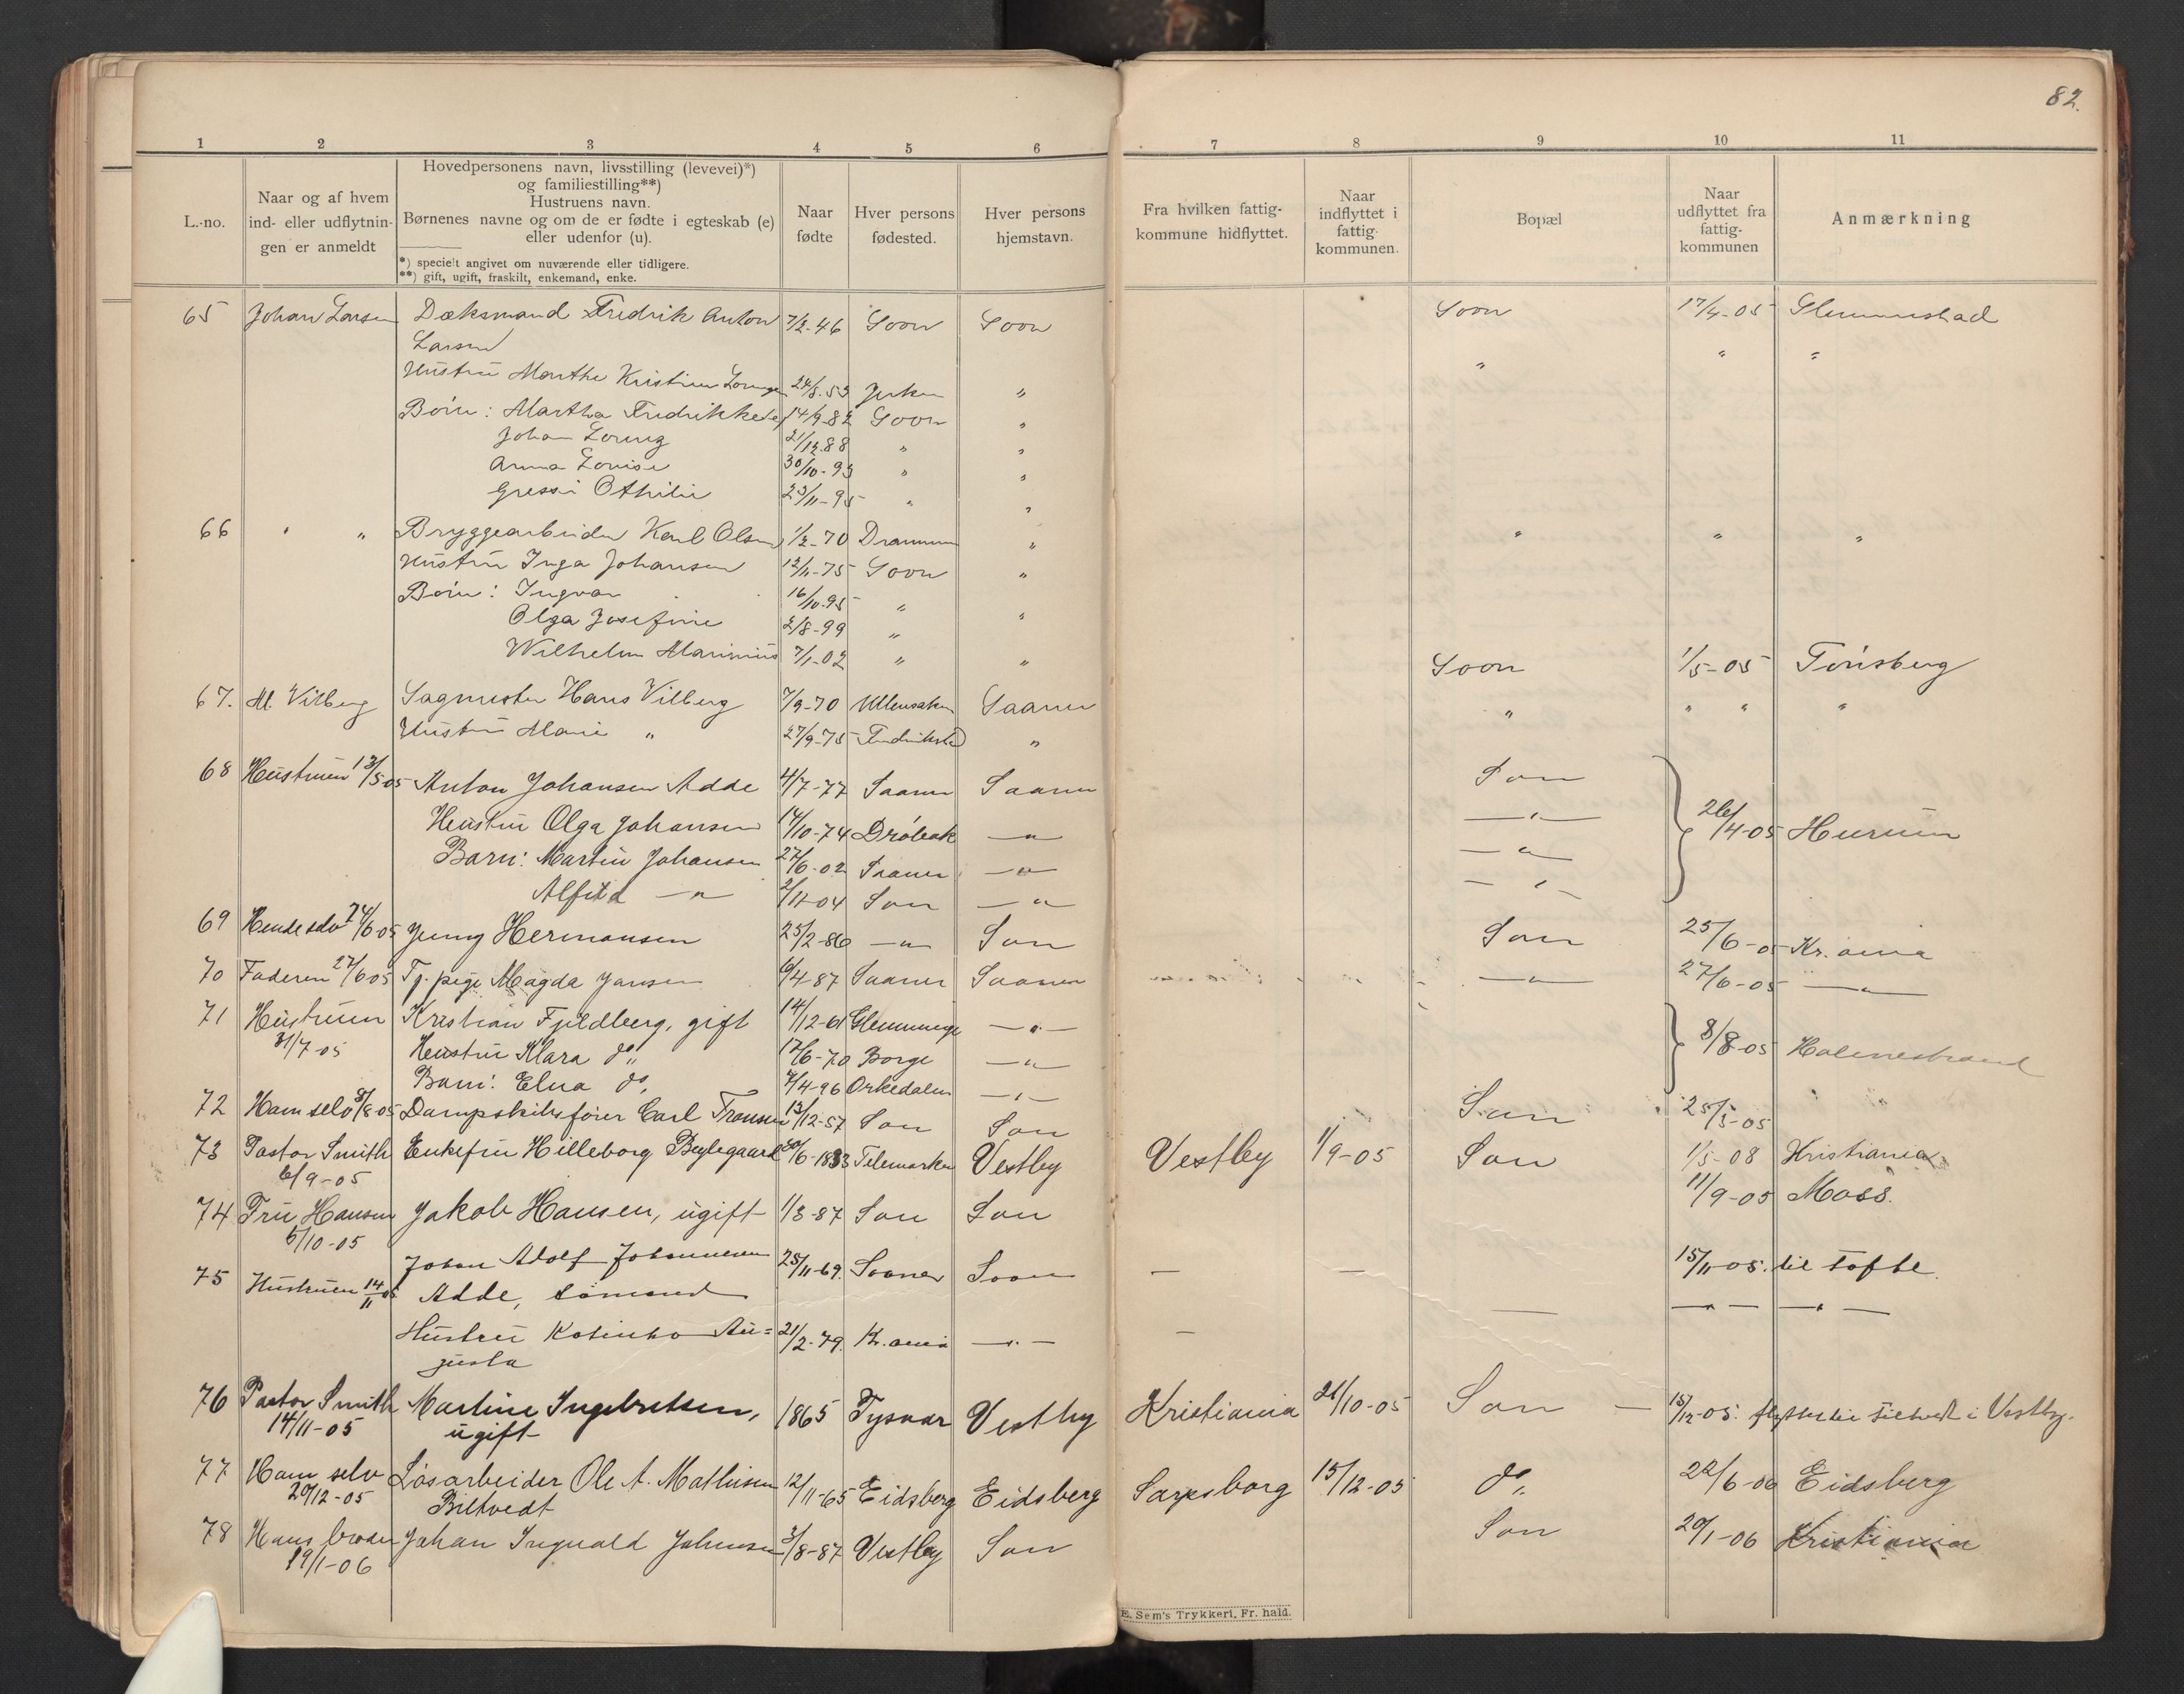 82.
1 2 3 4 5 6 7 8 9 10 11
L.-no.
Naar og af hvem
ind- eller udflytnin-
gen er anmeldt
Hovedpersonens navn, livsstilling (levevei)*)
og familiestilling**)
Hustruens navn.
Børnenes navne og om de er fødte i egteskab (e)
eller udenfor (u).
*) specielt angivet om nuværende eller tidligere.
**) gift, ugift, fraskilt, enkemand, enke.
Naar
fødte
Hver persons
fødested.
Hver persons
hjemstavn.
Fra hvilken fattig-
kommune hidflyttet.
Naar
indflyttet i
fattig-
kommunen.
Bopæl
Naar
udflyttet fra
fattig-
kommunen
Anmærkning
65 Johan Larsen Dæksmand Fredrik Anton 7/2-46 Soon Soon Soon 17/4-05
Larsen " " "
Hustru Marthe Kristine 24/8-53 "
Börn: Martha Fredrikke 14/9-82 Soon "
Johan 21/12-88 " "
Anna Louise 30/10-93 " "
Othilie 23/11-95 " "
66 " " Bryggearbeider Karl Olsen 1/2-70 Drammen " " " "
Hustru Inga Johansen 12/11-75 Soon "
Börn: Ingvar 16/10-95 "
Olga Josefine 2/8-99 " "
Wilhelm Marinius 7/1-02 " " Soon 1/5-05 Tönsberg
67. M. Vilberg Sagmester Hans Vilberg 7/9-70 Ullensaker Saaner " " " "
Hustru Marie " 27/9-75 Fredrikstad "
68 Hustruen 13/5-05 Anton Johansen Adde 4/7-77 Saaner Saaner Son
Hustru Olga Johansen 14/10-74 Dröbak —"— —"— 26/4-05 Hurum
Barn: Martin Johansen 27/6-02 Saaner —"— —"—
—"— 2/11-04 Son —"— —"—
69 Hende selv 24/6-05 Jenny Hermansen 25/2-86 —"— Son Son 25/6-05 Kr.ania
70 Faderen 27/6-05 Tj. pige Magda Jansen 6/4-87 Saaner Saaner —"— 27/6-05 —"—
71 Hustruen Kristian Fjeldberg, gift 14/12-61 Glemminge —"—
31/7-05 Hustru Klara do 17/6-70 Borge —"— 8/8-05 Holmestrand
Barn: Elna do 7/4-96 Orkedalen —"—
72 Ham selv 8/8-05 Dampskibsförer Carl Fransen 13/12-57 Son Son Son 25/5-05
73 Pastor Smith Enkefru Hilleborg 20/6-1833 Telemarken Vestby Vestby 1/9-05 Son 1/5-08 Kristiania
6/9-05
74 Fru Hansen Jakob Hansen, ugift 1/3-87 Son Son 11/9-05 Moss.
6/10-05
75 Hustruen 14/11 05 Johan Adolf Johannesen 25/11-69. Saaner Soon — — 15/11-05. til Tofte.
Adde, sömand — —"— —"—
Hustru Katinka Au= 21/2-79. Kr.ania —"— —
gusta
76 Pastor Smith Martine Ingebretsen, 1865 Tysvær Vestby Kristiania 21/10-05 Son — 15/12-05. i Vestby.
14/11-05 ugift
77 Ham selv Lösarbeider Ole A. Mathisen 12/11-65 Eidsberg Eidsberg Sarpsborg 15/12-05 do 22/6-06 Eidsberg
20/12-05 Biltvedt
78 Hans broder Johan Ingvald Johnsen 3/8-87 Vestby Son Son 20/1-06 Kristiania
19/1-06
E. Sem's Trykkeri, Fr. hald.